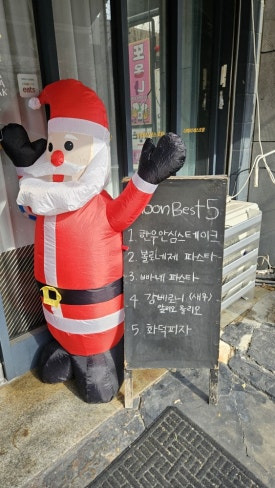 eats
포모나
oon Best 5
1. 한우안심스테이크
2. 볼로네제 파스타
3. 빠네 파스타
4. 감베로니 (새우)
알리오 올리오
5. 화덕피자